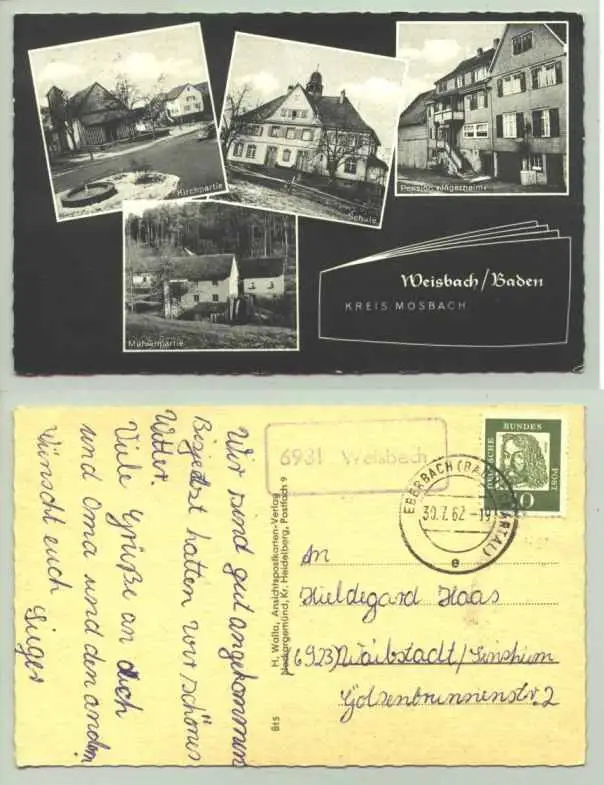 Kirchpartie
Schule
Pension »Jägerheim«
Mühlenpartie
Weisbach/Baden
KREIS MOSBACH
Wir sind gut angekommen
Bisjetzt hatten wir schönes
Wetter.
Viele Grüße an dich
und Oma und den andern
Wünscht euch
6931 Weisbach
H. Walla, Ansichtspostkarten-Verlag
Neckargemünd, Kr. Heidelberg, Postfach 9
Bts
DEUTSCHE BUNDES POST
EBERBACH (BADEN)
30.7.62.-19
e
An
Hieldegard Haas
(6923) Waibstadt/Sinsheim
Götzenbrunnenstr. 2